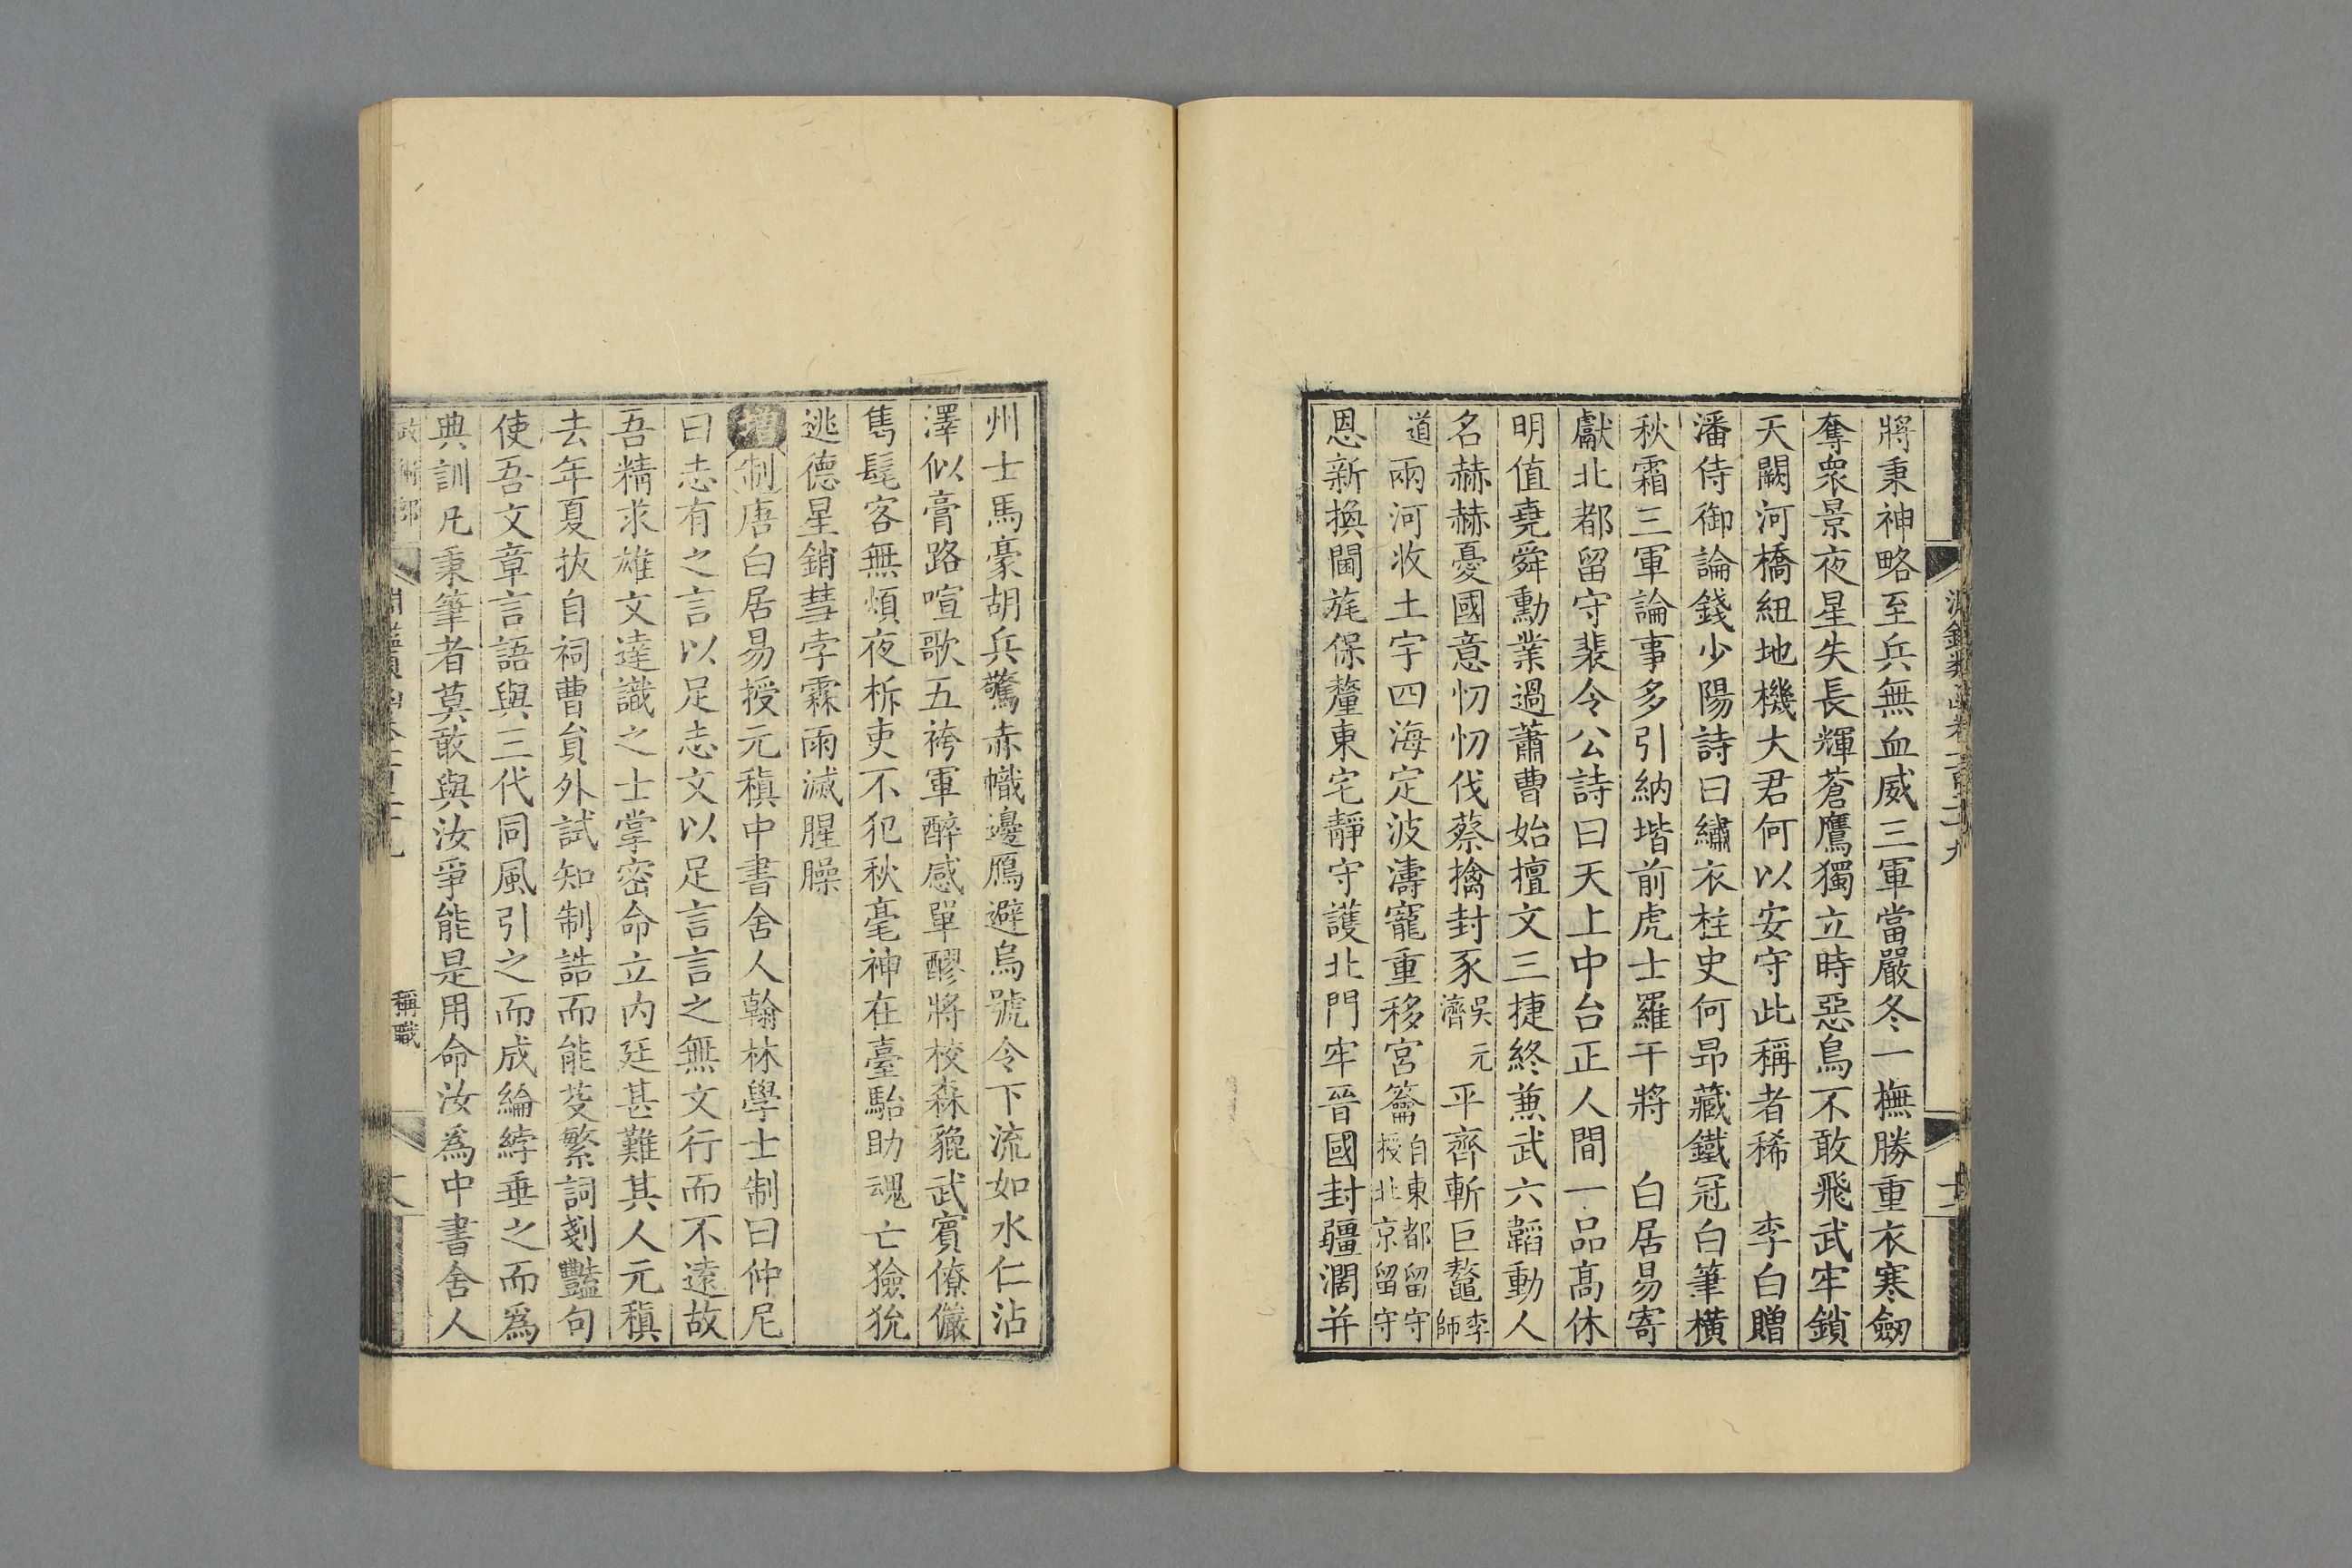 將秉神略至兵無血威三軍當嚴冬一撫勝重衣寒劒
奪衆景夜星失長輝蒼鷹獨立時惡鳥不敢飛武牢鎖
天闕河橋紐地機大君何以安守此稱者稀 李白贈
潘侍御論錢少陽詩曰繡衣柱史何昻藏鐵冠白筆橫
秋霜三軍論事多引納堦前虎士羅干將 白居易寄
獻北都留守裴令公詩曰天上中台正人間一品高休
明值堯舜勳業過蕭曹始擅文三捷終兼武六韜動人
名赫赫憂國意忉忉伐蔡擒封豕吳元濟平齊斬巨鼇李師
道兩河收土宇四海定波濤寵重移宮籥自東都留守授北京留守
恩新換閫旄保釐東宅靜守護北門牢晉國封疆濶并
州士馬豪胡兵驚赤幟邊鴈避烏號令下流如水仁沾
澤似膏路喧歌五袴軍醉感單醪將校森貔武賓僚儼
雋髦客無煩夜柝吏不犯秋毫神在臺駘助魂亡獫狁
逃德星銷彗孛霖雨滅腥臊
增制唐白居易授元稹中書舍人翰林學士制曰仲尼
曰志有之言以足志文以足言言之無文行而不遠故
吾精求雄文達識之士掌密命立内廷甚難其人元稹
去年夏拔自祠曹貟外試知制誥而能芟繁詞剗豔句
使吾文章言語與三代同風引之而成綸綍垂之而爲
典訓凡秉筆者莫敢與汝爭能是用命汝爲中書舍人
稱職